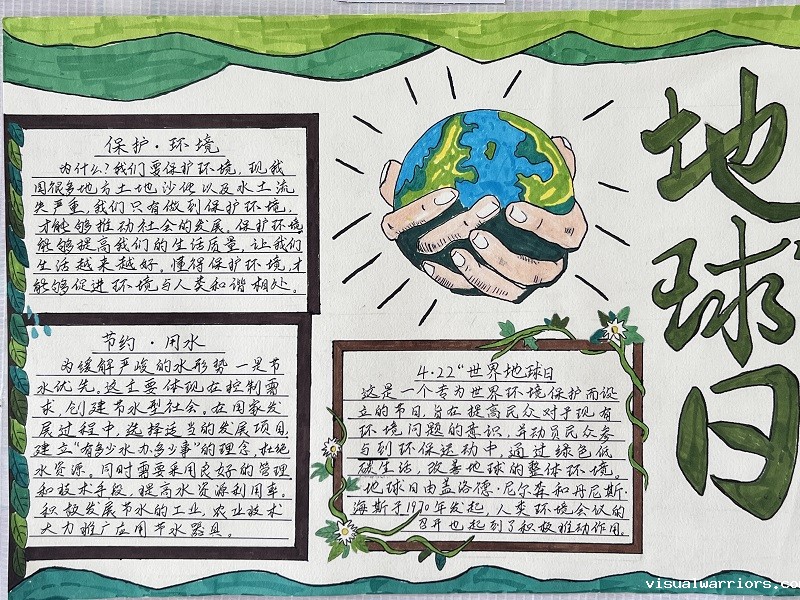 地球日
保护·环境
为什么?我们要保护环境,现我
国很多地方土地沙化以及水土流
失严重,我们只有做到保护环境,
才能够推动社会的发展。保护环境
能够提高我们的生活质量,让我们
生活越来越好。懂得保护环境,才
能够促进环境与人类和谐相处。
节约·用水
为缓解严峻的水形势一是节
水优先,这主要体现在控制需
求,创建节水型社会。在国家发
展过程中,选择适当的发展项目,
建立“有多少水办多少事”的理念,杜绝
水资源。同时需要采用良好的管理
和技术手段,提高水资源利用率。
积极发展节水的工业,农业技术
大力推广应用节水器具。
4·22“世界地球日
这是一个专为世界环境保护而设
立的节日,旨在提高民众对于现有
环境问题的意识,并动员民众参
与到环保运动中,通过绿色低
碳生活,改善地球的整体环境。
地球日由盖洛德·尼尔森和丹尼斯·
海斯于1970年发起,人类环境会议的
召开也起到了积极推动作用。
visualwarriors.co